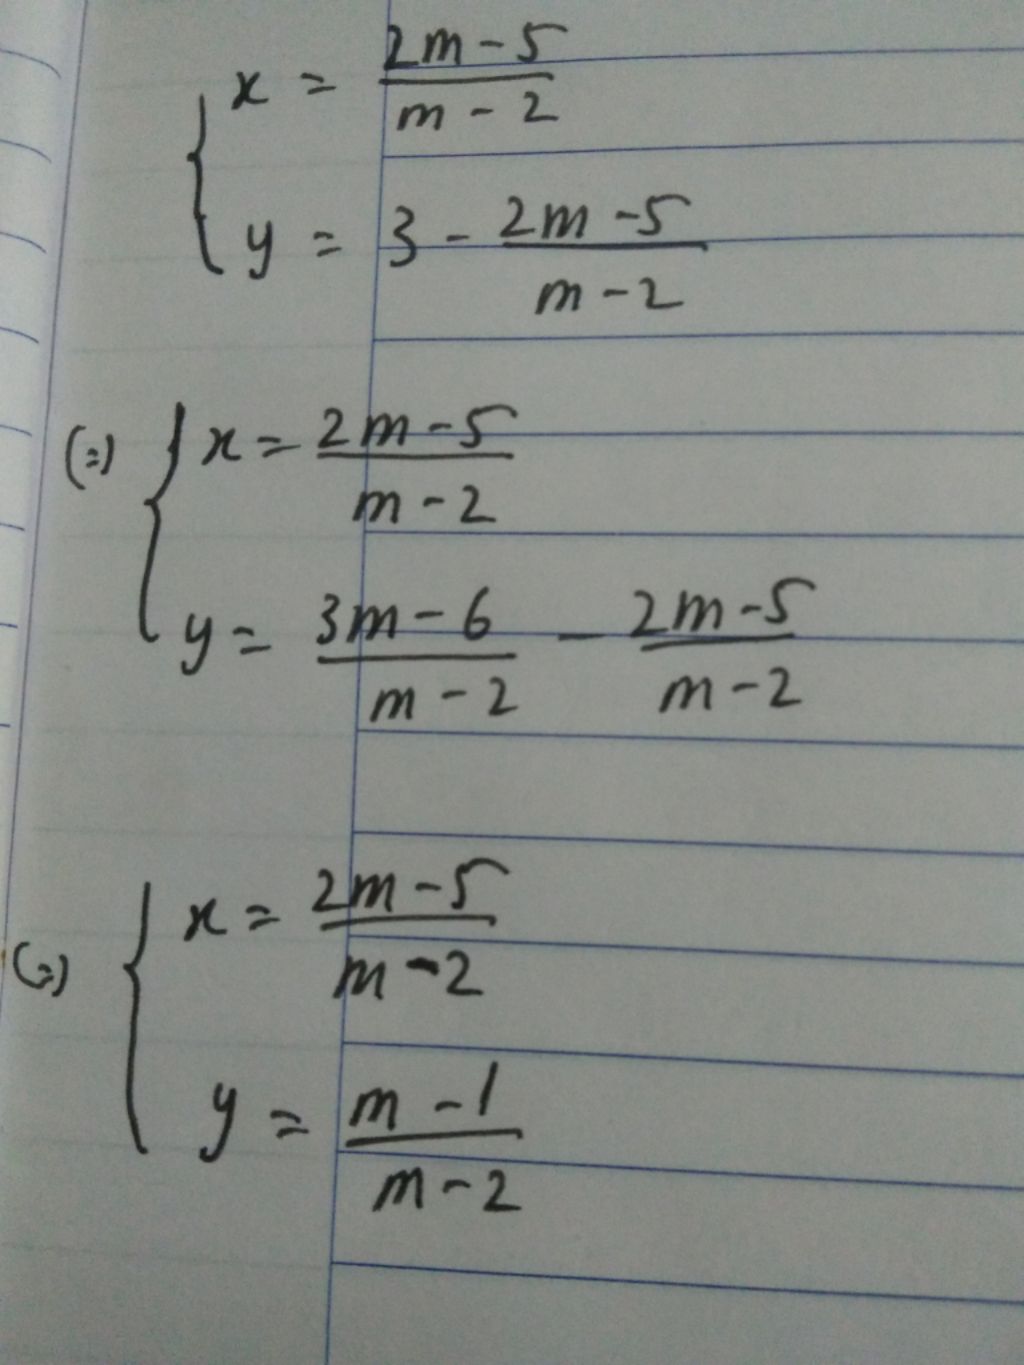 x = \frac{2m - 5}{m - 2}
y = 3 - \frac{2m - 5}{m - 2}
(=) x = \frac{2m - 5}{m - 2}
y = \frac{3m - 6}{m - 2} - \frac{2m - 5}{m - 2}
(=) x = \frac{2m - 5}{m - 2}
y = \frac{m - 1}{m - 2}